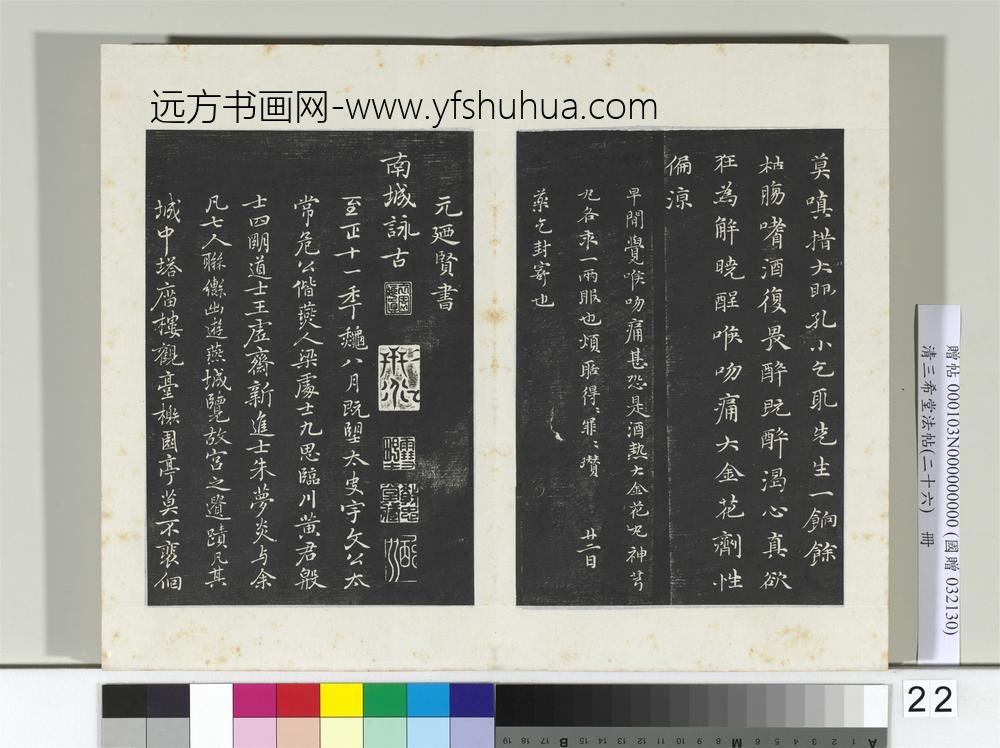 远方书画网-www.yfshuhua.com
莫嗔措大眼孔小乞取先生一餉餘
枯腸嗜酒復畏醉既醉渴心真欲
狂為解晓酲喉吻痛大金花劑性
偏涼
早間覺喉吻痛甚恐是酒熱大金花丸神芎
丸各求一兩服也煩聒得罪
藥乞封寄也
廿二日
元廼賢書
南城詠古
至正十一年龝八月既望太史宇文公太
常危公偕燕人梁處士九思臨川黄君殷
士四明道士王虛齋新進士朱夢炎与余
凡七人聯僽出遊燕城覽故宮之遺蹟凡其
城中塔廟樓觀臺榭園亭莫不裵佪
贈帖 000103N000000000 (國贈 032130)
清三希堂法帖(二十六) 冊
22
19 18 17 B 16 15 14 13 12 11 10 9 8 7 M 6 5 4 3 2 1 A